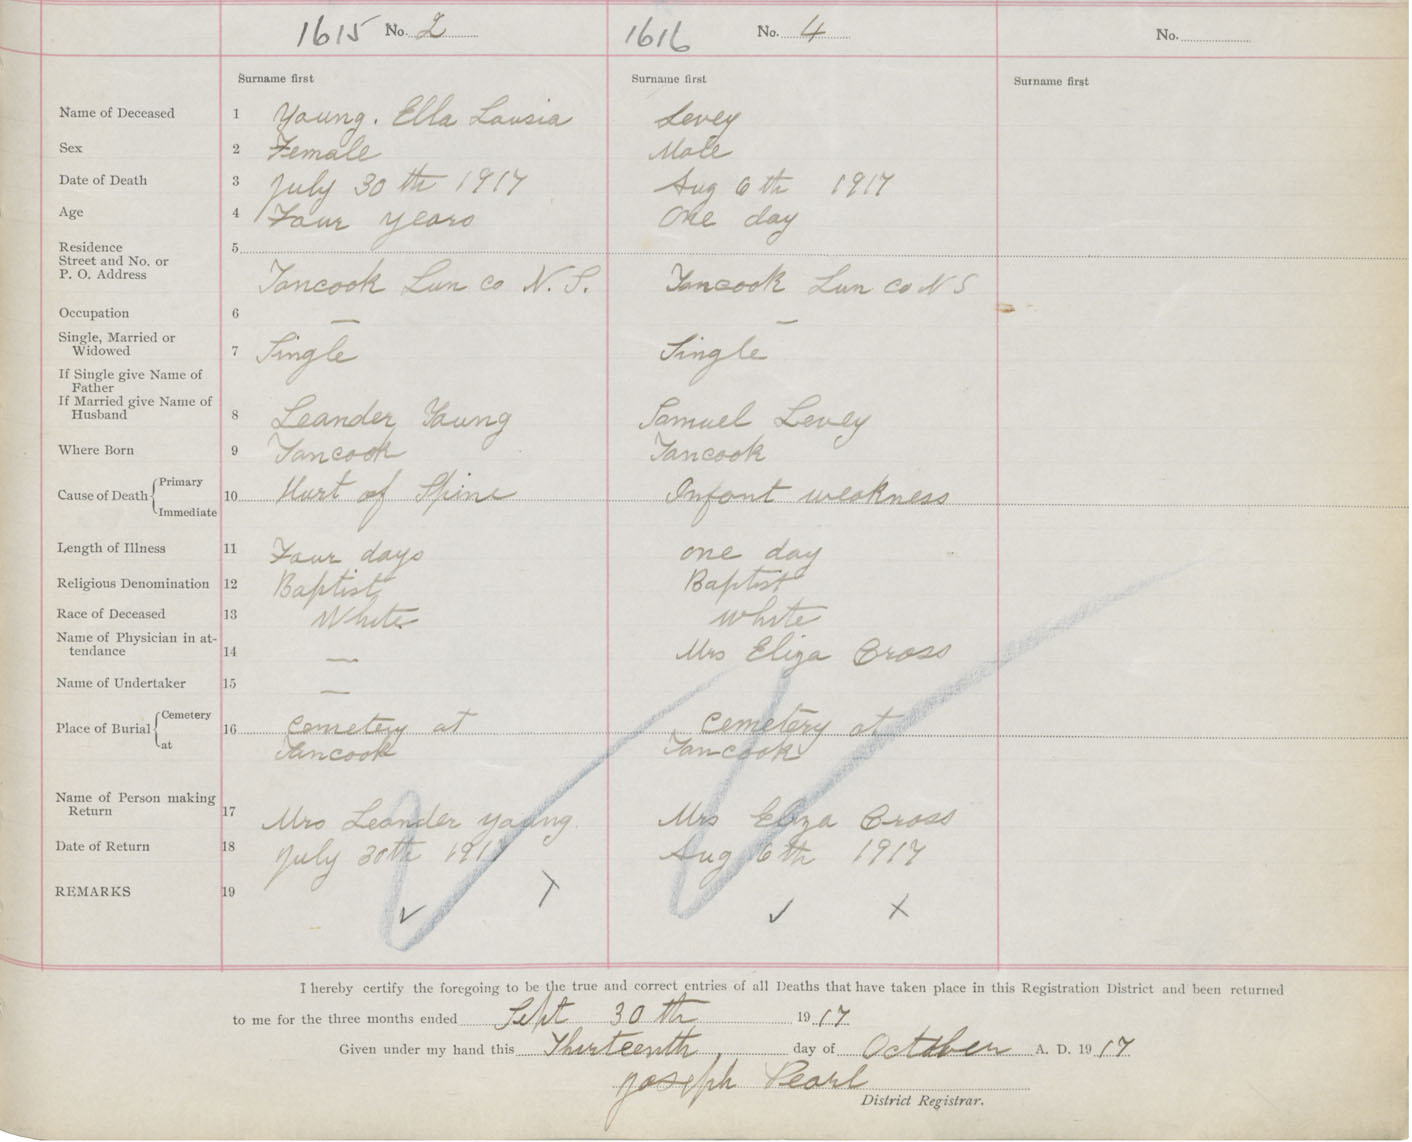 1615 No. 2 1616 No. 4 No.
Surname first Surname first Surname first
Name of Deceased 1 Young. Ella Lousia Levey
Sex 2 Female Male
Date of Death 3 July 30th 1917 Aug 6th 1917
Age 4 Four years One day
Residence 5
Street and No. or
P. O. Address Tancook Lun Co N. S. Tancook Lun Co N S
Occupation 6 — —
Single, Married or
Widowed 7 Single Single
If Single give Name of
Father
If Married give Name of
Husband 8 Leander Young Samuel Levey
Where Born 9 Tancook Tancook
Cause of Death Primary
10 Hurt of Spine Infant weakness
Immediate
Length of Illness 11 Four days one day
Religious Denomination 12 Baptist Baptist
Race of Deceased 13 White white
Name of Physician in at-
tendance 14 — Mrs Eliza Cross
Name of Undertaker 15 —
Place of Burial Cemetery
16 Cemetery at Cemetery at
at Tancook Tancook
Name of Person making
Return 17 Mrs Leander young. Mrs Eliza Cross
Date of Return 18 July 30th 1917 Aug 6th 1917
REMARKS 19
I hereby certify the foregoing to be the true and correct entries of all Deaths that have taken place in this Registration District and been returned
to me for the three months ended Sept 30th 1917
Given under my hand this Thirteenth day of October A. D. 1917
Joseph Pearl
District Registrar.